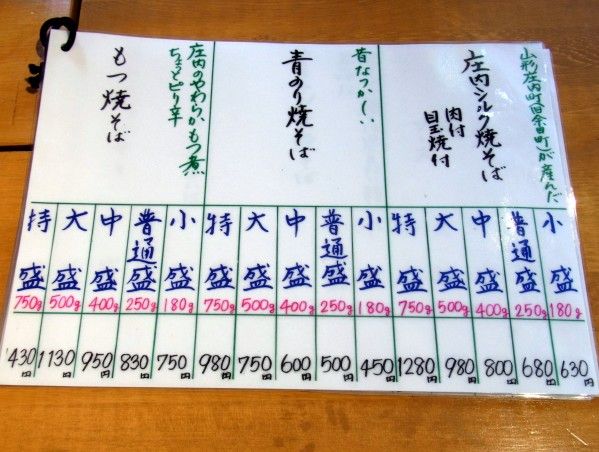 山形庄内町(旧余目町)が産んだ
庄内シルク焼そば
肉付
目玉焼付
小盛 180g 630円
普通盛 250g 680円
中盛 400g 800円
大盛 500g 980円
特盛 750g 1280円
昔なつかしい
青のり焼そば
小盛 180g 450円
普通盛 250g 500円
中盛 400g 600円
大盛 500g 750円
特盛 750g 980円
庄内のやわらかもつ煮
ちょっとピリ辛
もつ焼そば
小盛 180g 750円
普通盛 250g 830円
中盛 400g 950円
大盛 500g 1130円
特盛 750g 1430円